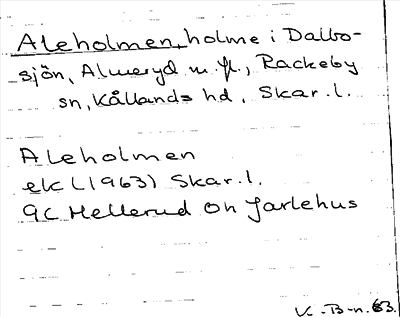 Aleholmen, holme i Dalbo-
sjön, Almeryd m. fl., Rackeby
sn, Kållands hd, Skar. l.
Aleholmen
ek (1963) Skar. l.
9C Mellerud Öh Jarlehus
K.-B-n. 63.